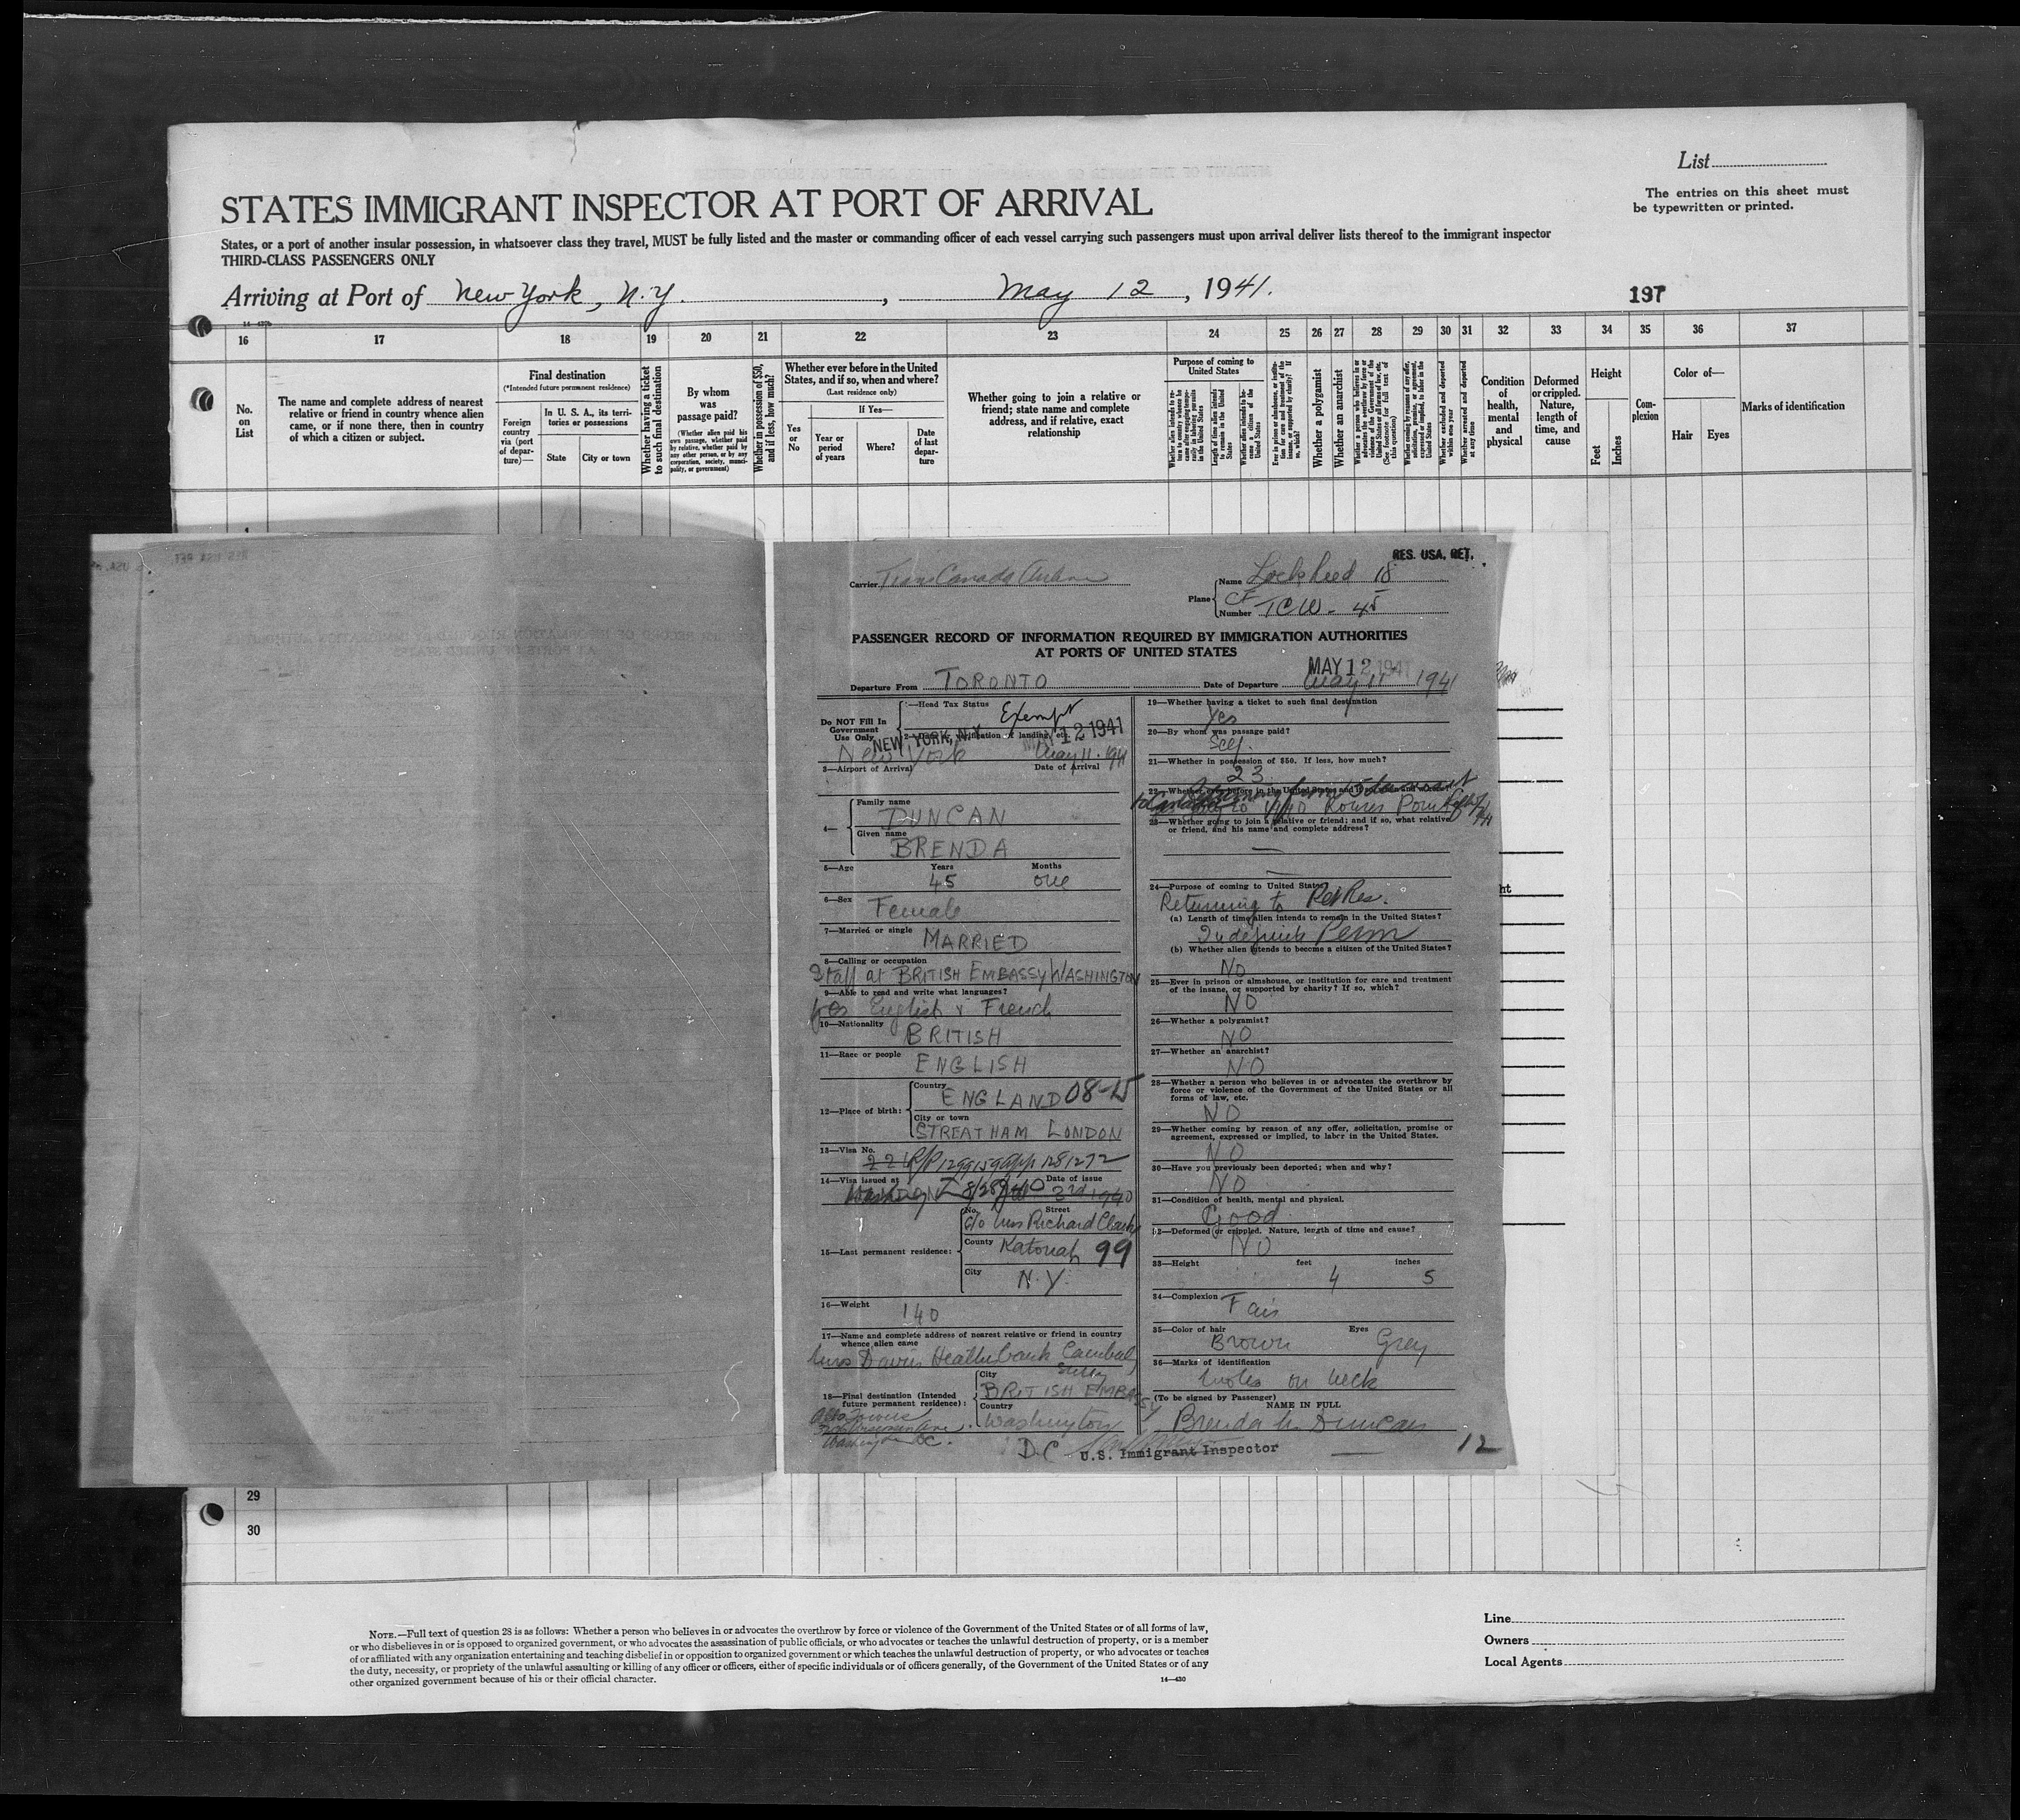 List
The entries on this sheet must
be typewritten or printed.
STATES IMMIGRANT INSPECTOR AT PORT OF ARRIVAL
States, or a port of another insular possession, in whatsoever class they travel, MUST be fully listed and the master or commanding officer of each vessel carrying such passengers must upon arrival deliver lists thereof to the immigrant inspector
THIRD-CLASS PASSENGERS ONLY
Arriving at Port of New York, N.Y. , May 12, 1941.
197
16 17 18 19 20 21 22 23 24 25 26 27 28 29 30 31 32 33 34 35 36 37
No. on List
The name and complete address of nearest
relative or friend in country whence alien
came, or if none there, then in country
of which a citizen or subject.
Final destination
(*Intended future permanent residence)
Foreign country via (port of departure)—
In U. S. A., its territories or possessions
State
City or town
Whether having a ticket to such final destination
By whom was passage paid?
(Whether alien paid his own passage, whether paid by relative, whether paid by any other person, or by any corporation, society, municipality, or government)
Whether in possession of $50, and if less, how much?
Whether ever before in the United States, and if so, when and where?
(Last residence only)
If Yes—
Yes or No
Year or period of years
Where?
Date of last departure
Whether going to join a relative or
friend; state name and complete
address, and if relative, exact
relationship
Purpose of coming to United States
Whether a polygamist
Whether an anarchist
Condition of health, mental and physical
Deformed or crippled. Nature, length of time, and cause
Height
Feet
Inches
Complexion
Color of—
Hair
Eyes
Marks of identification
RES. USA, RET.
Carrier Trans Canada Airline
Plane
Name Lockheed 18
Number CF TCW - 45
PASSENGER RECORD OF INFORMATION REQUIRED BY IMMIGRATION AUTHORITIES
AT PORTS OF UNITED STATES
MAY 12 1941
Departure From TORONTO Date of Departure May 11 1941
Do NOT Fill In
Government
Use Only
1—Head Tax Status Exempt
NEW YORK, N.Y. MAY 12 1941
New York May 11. 1941
3—Airport of Arrival Date of Arrival
4—
Family name
DUNCAN
Given name
BRENDA
5—Age Years Months
45 one
6—Sex
Female
7—Married or single
MARRIED
8—Calling or occupation
Staff at BRITISH EMBASSY WASHINGTON
9—Able to read and write what languages?
Yes English & French
10—Nationality
BRITISH
11—Race or people
ENGLISH
12—Place of birth:
Country
ENGLAND 08-15
City or town
STREATHAM LONDON
13—Visa No.
14—Visa issued at Date of issue
3rd 1940
15—Last permanent residence:
No. Street
c/o Mrs Richard Clark
County Katonah 99
City N.Y.
16—Weight
140
17—Name and complete address of nearest relative or friend in country
whence alien came
18—Final destination (Intended
future permanent residence):
City
BRITISH EMBASSY
Country
Washington
D.C.
Washington DC.
19—Whether having a ticket to such final destination
Yes
20—By whom was passage paid?
Self.
21—Whether in possession of $50. If less, how much?
23
22—Whether ever before in the United States and if so, when and where?
1940 Rouses Point
23—Whether going to join a relative or friend; and if so, what relative
or friend, and his name and complete address?
—
24—Purpose of coming to United States
Returning to
(a) Length of time alien intends to remain in the United States?
Indefinite Perm
(b) Whether alien intends to become a citizen of the United States?
No
25—Ever in prison or almshouse, or institution for care and treatment
of the insane, or supported by charity? If so, which?
NO
26—Whether a polygamist?
NO
27—Whether an anarchist?
NO
28—Whether a person who believes in or advocates the overthrow by
force or violence of the Government of the United States or all
forms of law, etc.
NO
29—Whether coming by reason of any offer, solicitation, promise or
agreement, expressed or implied, to labor in the United States.
NO
30—Have you previously been deported; when and why?
NO
31—Condition of health, mental and physical.
Good
32—Deformed or crippled. Nature, length of time and cause?
NO
33—Height feet inches
4 5
34—Complexion Fair
35—Color of hair Eyes
Brown Grey
36—Marks of identification
moles on neck
(To be signed by Passenger)
NAME IN FULL
Brenda M. Duncan
U.S. Immigrant Inspector
12
29
30
NOTE.—Full text of question 28 is as follows: Whether a person who believes in or advocates the overthrow by force or violence of the Government of the United States or of all forms of law,
or who disbelieves in or is opposed to organized government, or who advocates the assassination of public officials, or who advocates or teaches the unlawful destruction of property, or is a member
of or affiliated with any organization entertaining and teaching disbelief in or opposition to organized government or which teaches the unlawful destruction of property, or who advocates or teaches
the duty, necessity, or propriety of the unlawful assaulting or killing of any officer or officers, either of specific individuals or of officers generally, of the Government of the United States or of any
other organized government because of his or their official character.
14—430
Line
Owners
Local Agents